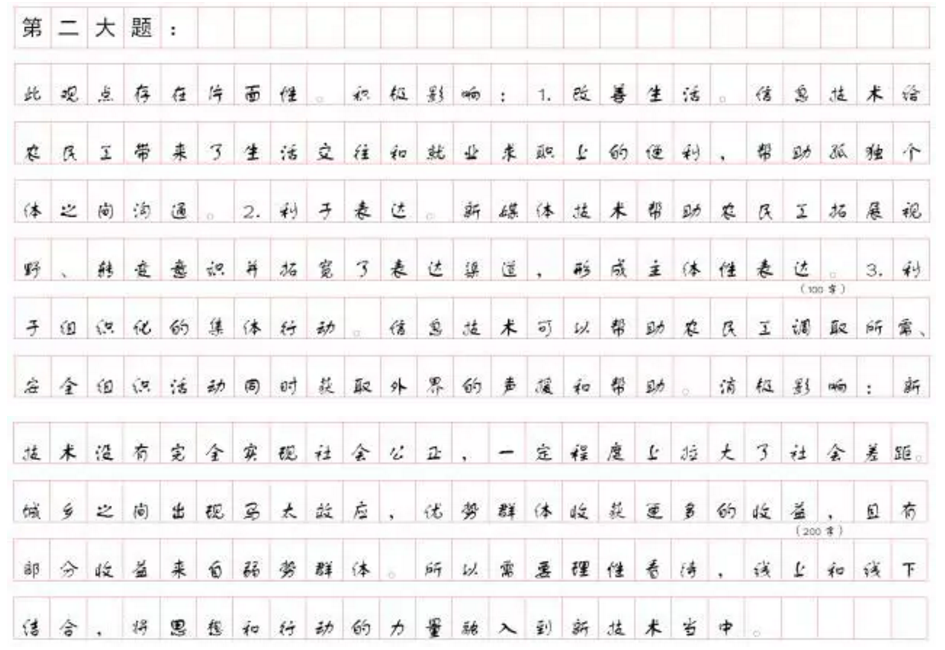 第二大题：
此观点存在片面性。积极影响：1.改善生活。信息技术给
农民工带来了生活交往和就业求职上的便利，帮助孤独个
体之间沟通。2.利于表达。新媒体技术帮助农民工拓展视
野、转变意识并拓宽了表达渠道，形成主体性表达。3.利
（100字）
于组织化的集体行动。信息技术可以帮助农民工调取所需、
安全组织活动同时获取外界的声援和帮助。消极影响：新
技术没有完全实现社会公正，一定程度上拉大了社会差距。
城乡之间出现马太效应，优势群体收获更多的收益，且有
（200字）
部分收益来自弱势群体。所以需要理性看待，线上和线下
结合，将思想和行动的力量融入到新技术当中。